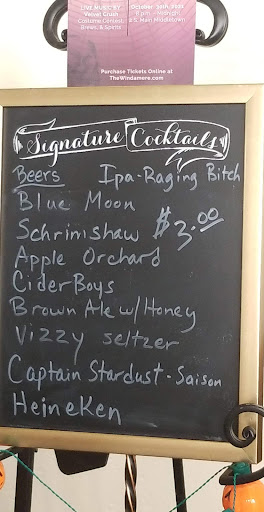 LIVE MUSIC BY
Velvet Crush
Costume Contest,
Break, & Spirits
October 30th, 2021
8 p.m. - Midnight
2 S. Main Middletown
Purchase Tickets Online at
TheWindamere.com
Signature Cocktails
Beers Ipa-Raging Bitch
Blue Moon
Schrimshaw $3.00
Apple Orchard
CiderBoys
Brown Ale w/Honey
Vizzy seltzer
Captain Stardust - Saison
Heineken